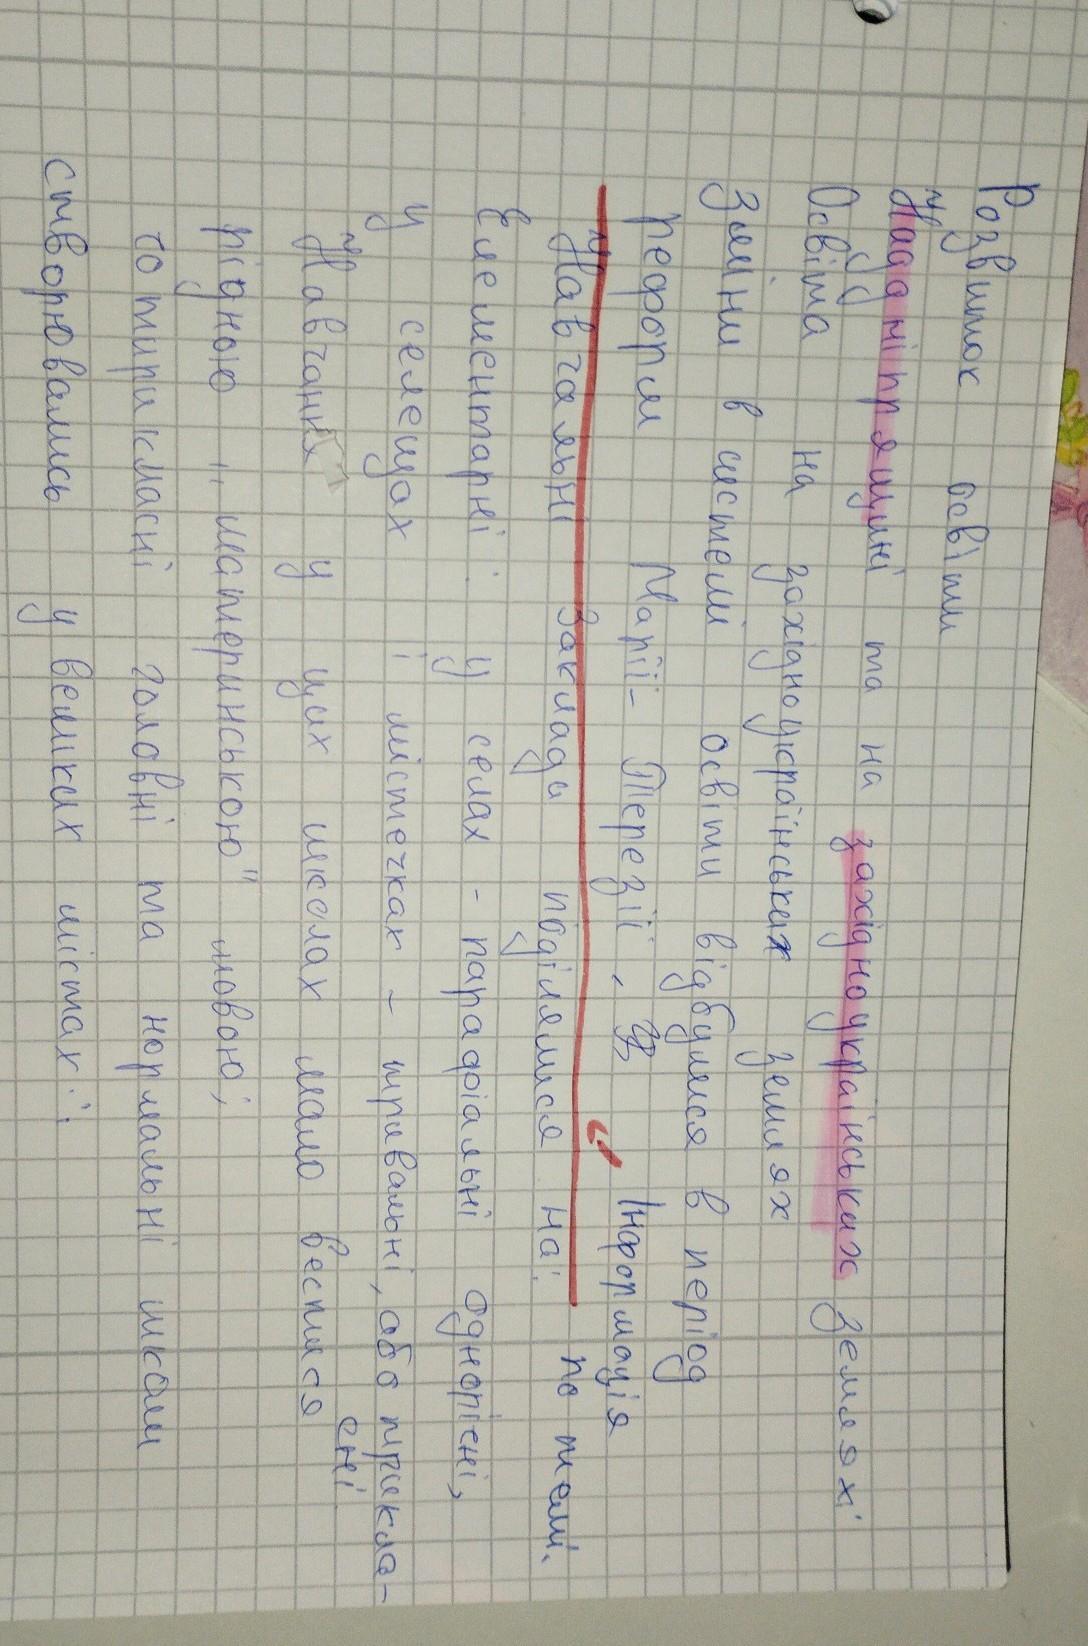 Розвиток освіти
Наддніпрящині та на західноукраїнських землях.
Освіта на західноукраїнських землях
Зміни в системі освіти відбулися в період
реформ Марії-Терезії, Інформація
по темі.
Навчальні заклади поділялися на:
Елементарні: у селах - парафіальні однорічні,
у селещах і містечках - тривальні, або трикла-
сні
Навчання у цих школах мало вестися
рідною "материнською" мовою;
чотирикласні головні та нормальні школи
створювались у великих містах;